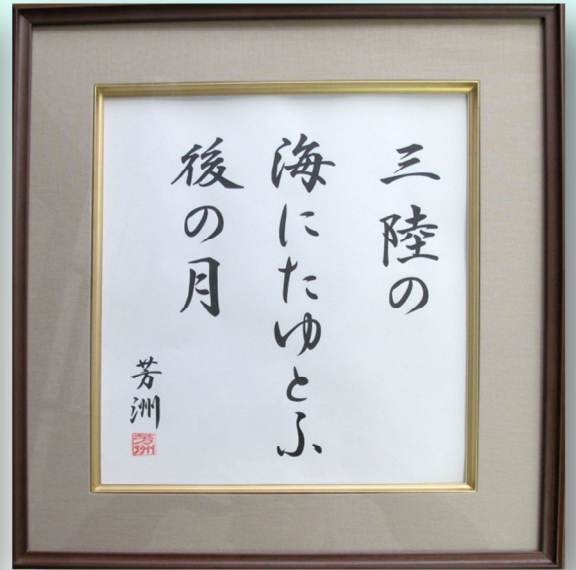 三陸の
海にたゆとふ
後の月
芳洲